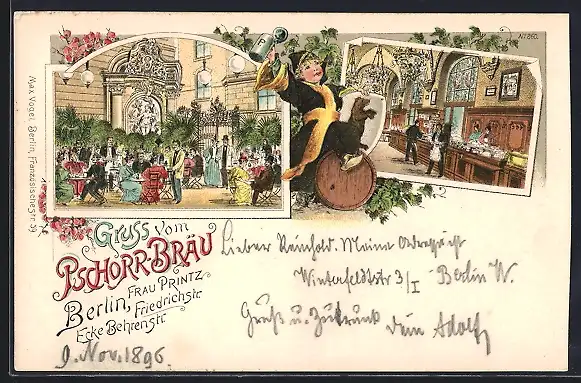 No 260.
Max Vogel, Berlin, Französischestr. 39
Gruss vom
Pschorr-Bräu
Frau Printz
Berlin, Friedrichstr.
Ecke Behrenstr.
Lieber Reinhold. Meine Adresse ist
Winterfeldtstr 3/I - Berlin W.
Gruß u. Zutrunk Dein Adolf
9. Nov. 1896.